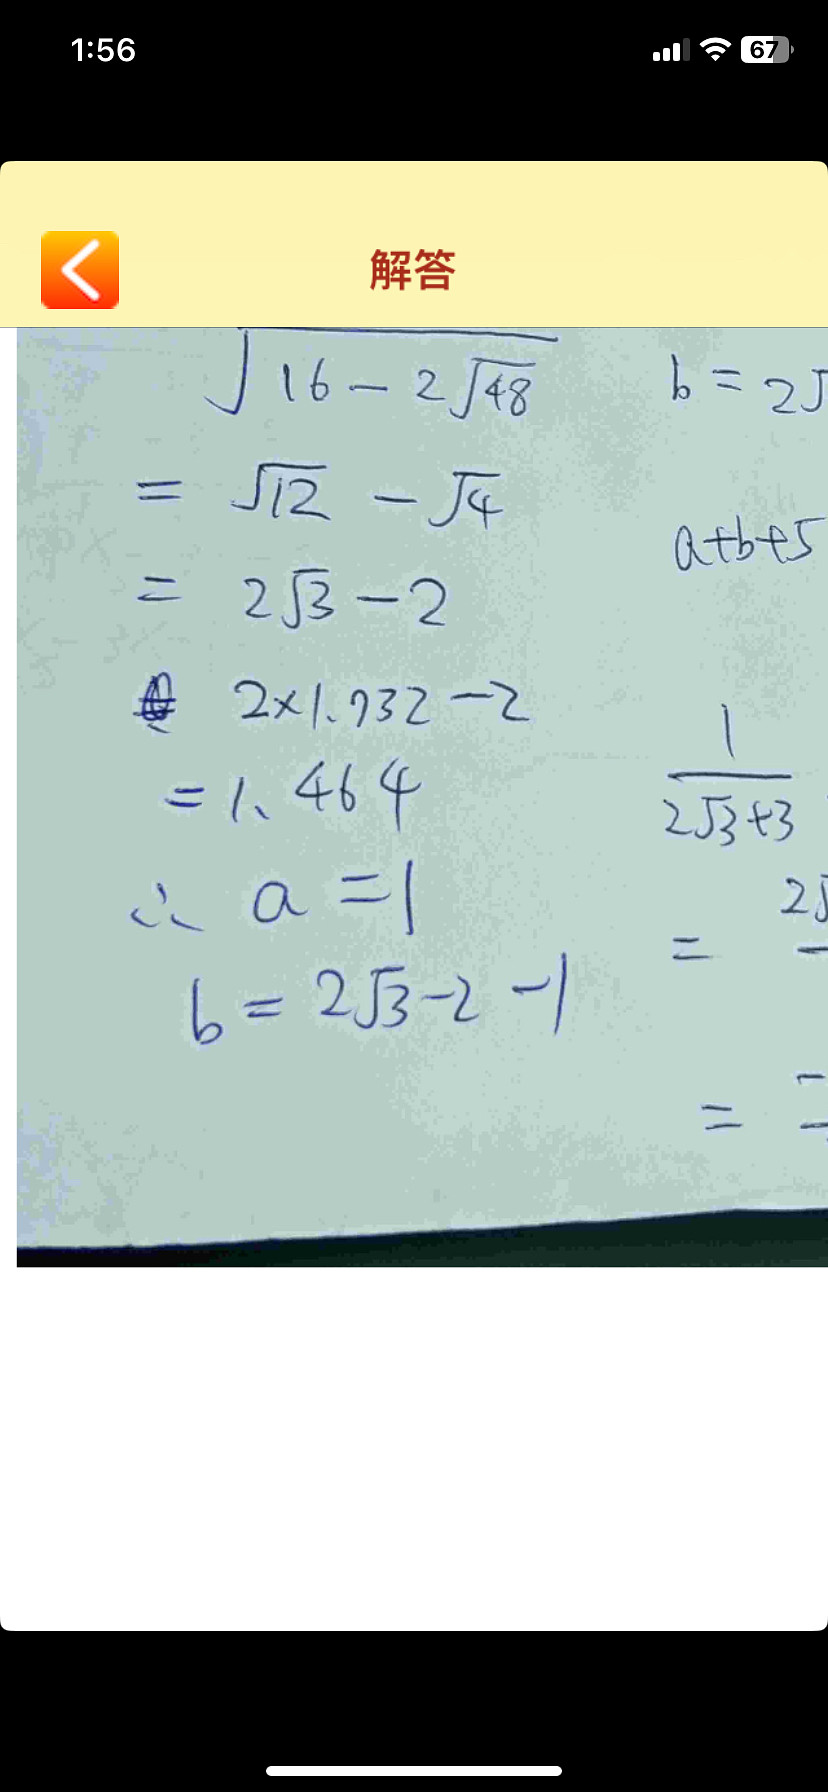 1:56
67
解答
√(16 - 2√48)
= √12 - √4
= 2√3 - 2
2×1.732 - 2
= 1.464
∴ a = 1
b = 2√3 - 2 - 1
b = 2√
a+b+5
1/(2√3+3)
= 2√
=